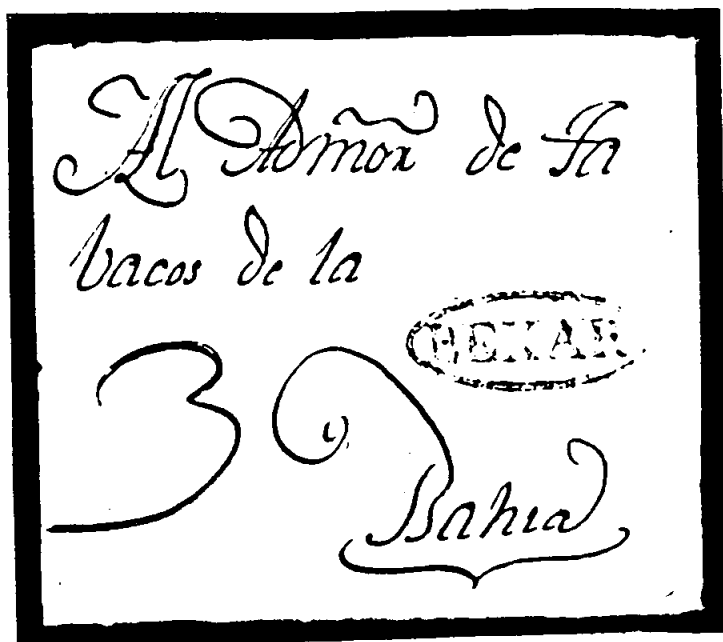 Al Admõr de Ta
bacos de la
BEXAR
3
Bahia